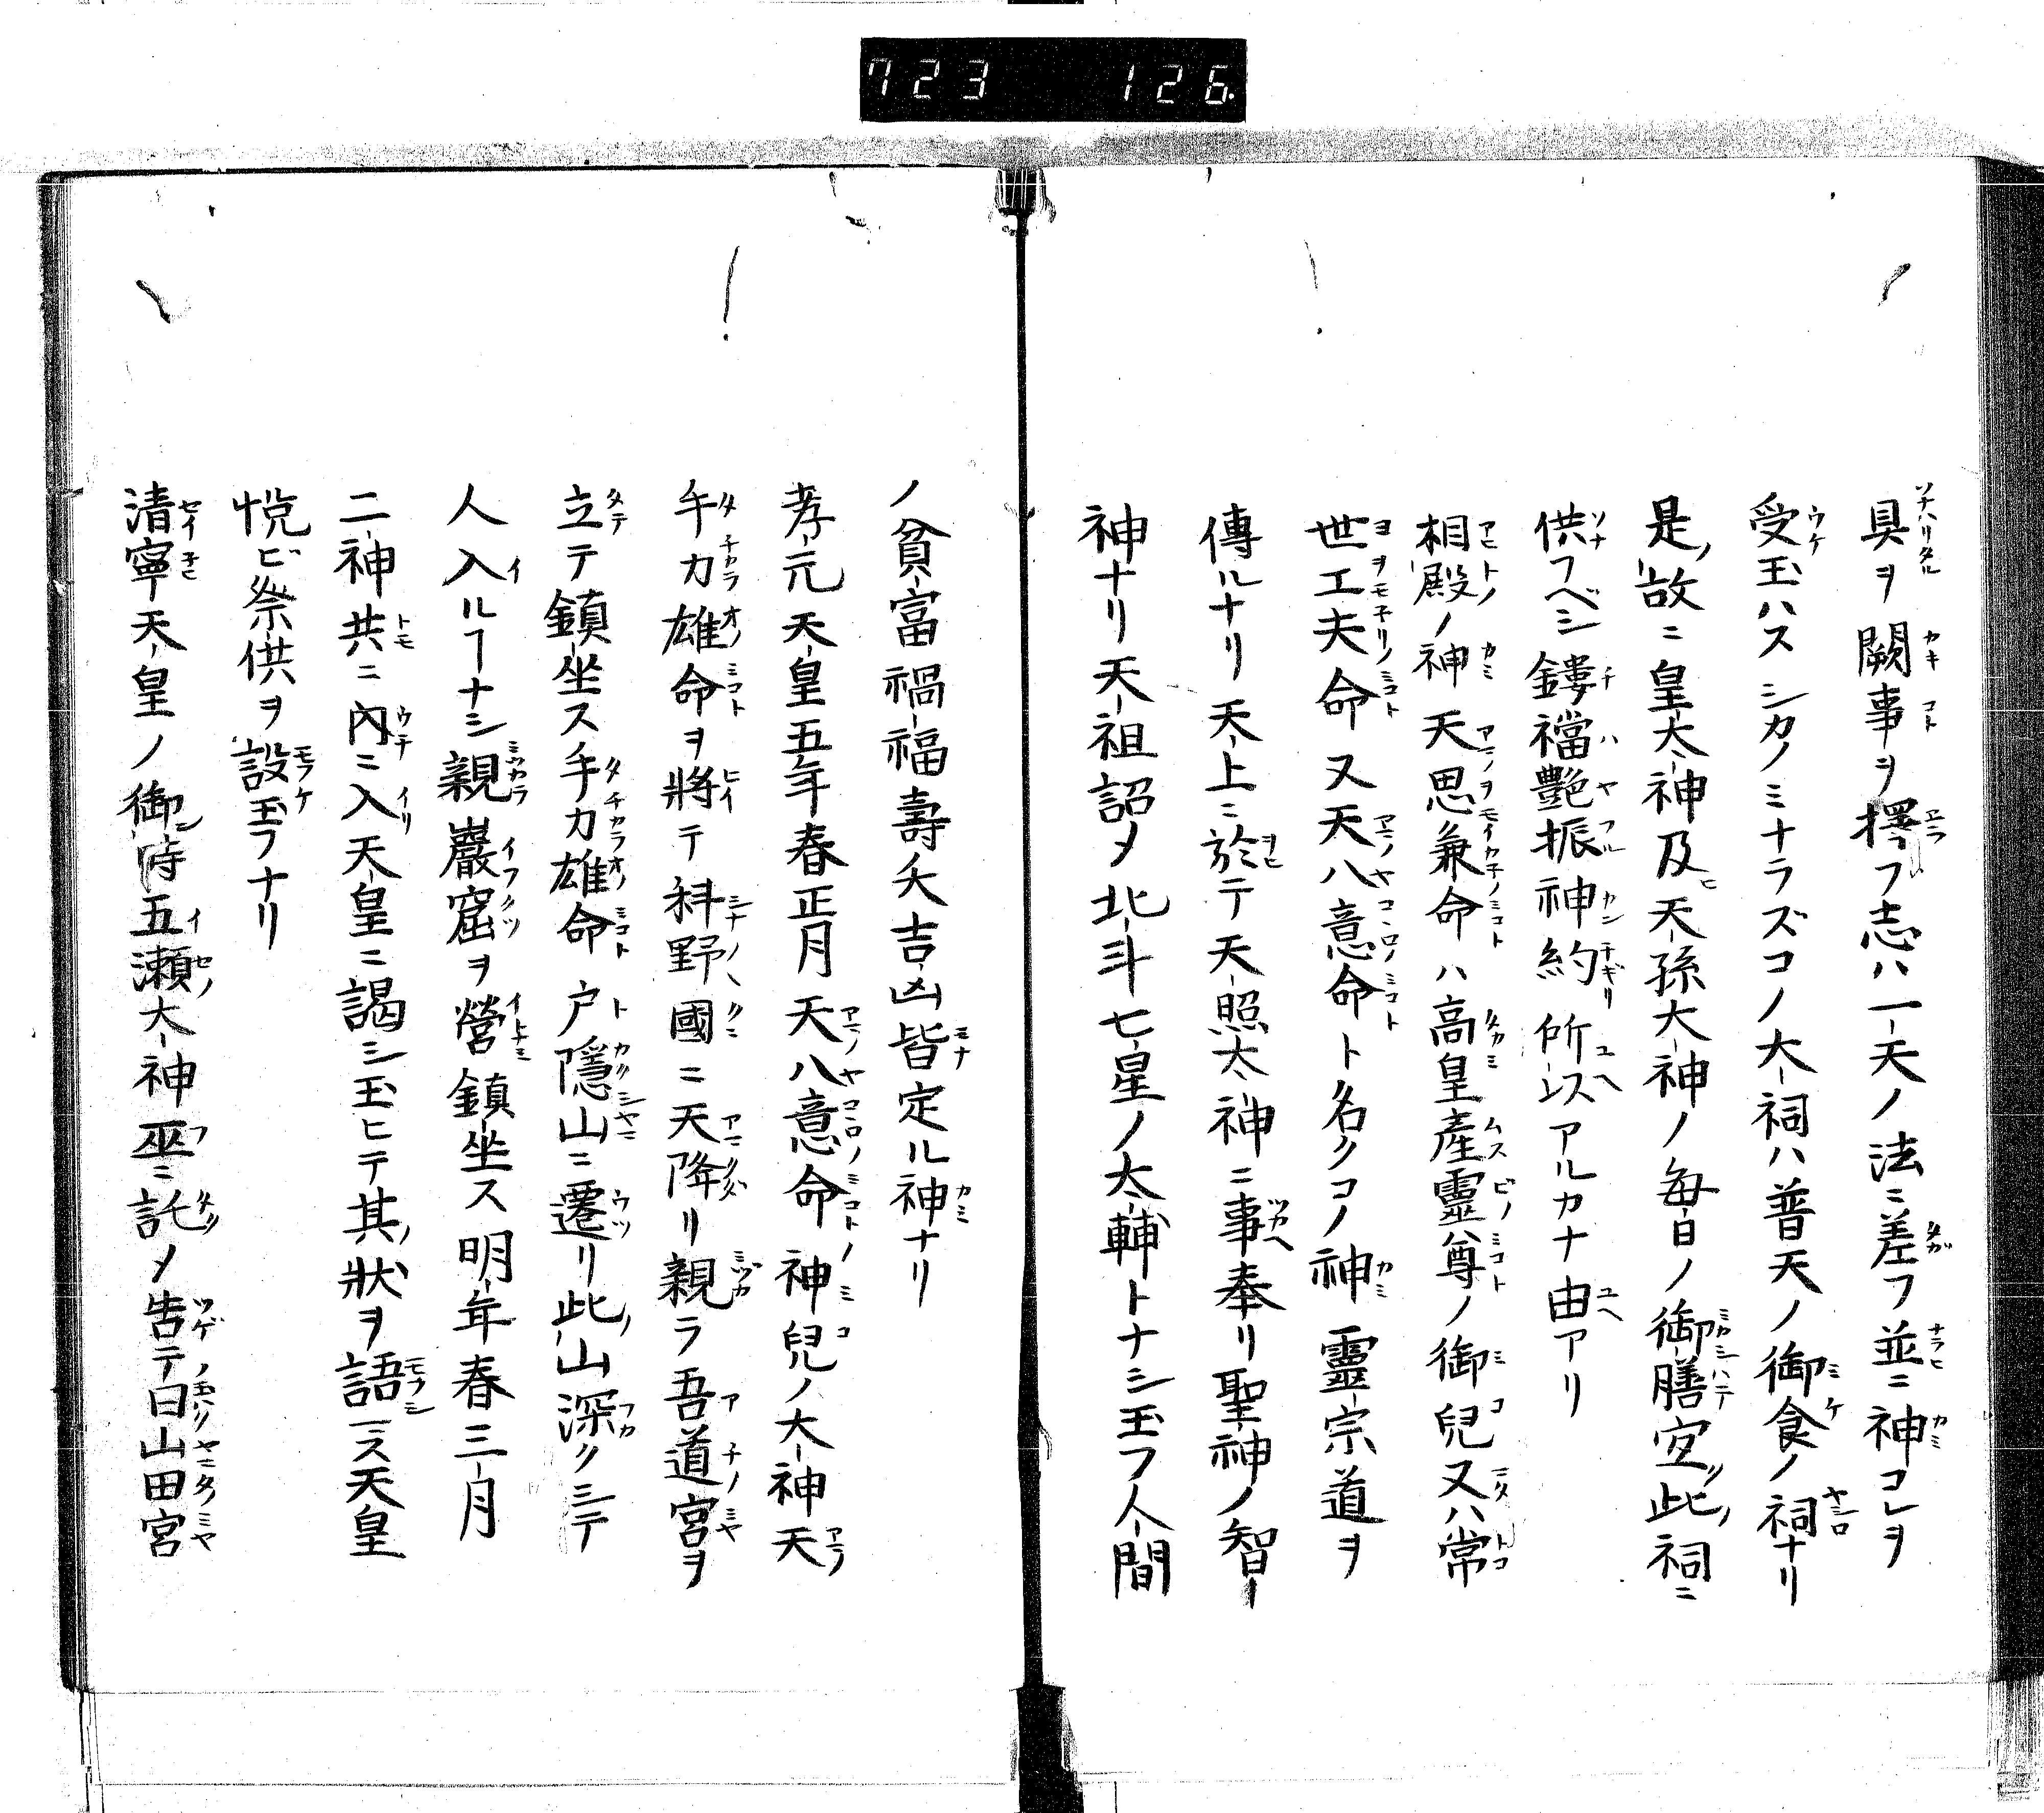 723 126
具ヲ闕事ヲ擇フ志ハ一天ノ法ニ差フ並ニ神コレヲ
受玉ハスシカノミナラズコノ大祠ハ普天ノ御食ノ祠ナリ
是故ニ皇太神及天孫大神ノ毎日ノ御膳定此祠ニ
供フベシ鏤襠艶振神約所以アルカナ由アリ
相殿ノ神天思兼命ハ高皇産靈尊ノ御兒又ハ常
世工夫命又天八意命ト名クコノ神靈宗道ヲ
傳ルナリ天上ニ於テ天照太神ニ事奉リ聖神ノ智ー
神ナリ天祖詔メ北斗七星ノ太輔トナシ玉フ人間
ノ貧富禍福壽夭吉凶皆定ル神ナリ
孝元天皇五年春正月天八意命神兒ノ大神天
手力雄命ヲ將テ科野國ニ天降リ親ラ吾道宮ヲ
立テ鎮坐ス手力雄命戸隱山ニ遷リ此山深クシテ
人入ルーナシ親巖窟ヲ營鎮坐ス明年春三月
二神共ニ内ニ入天皇ニ謁シ玉ヒテ其狀ヲ語ス天皇
悦ビ祭供ヲ設玉フナリ
清寧天皇ノ御時五瀬大神巫ニ託メ告テ曰山田宮